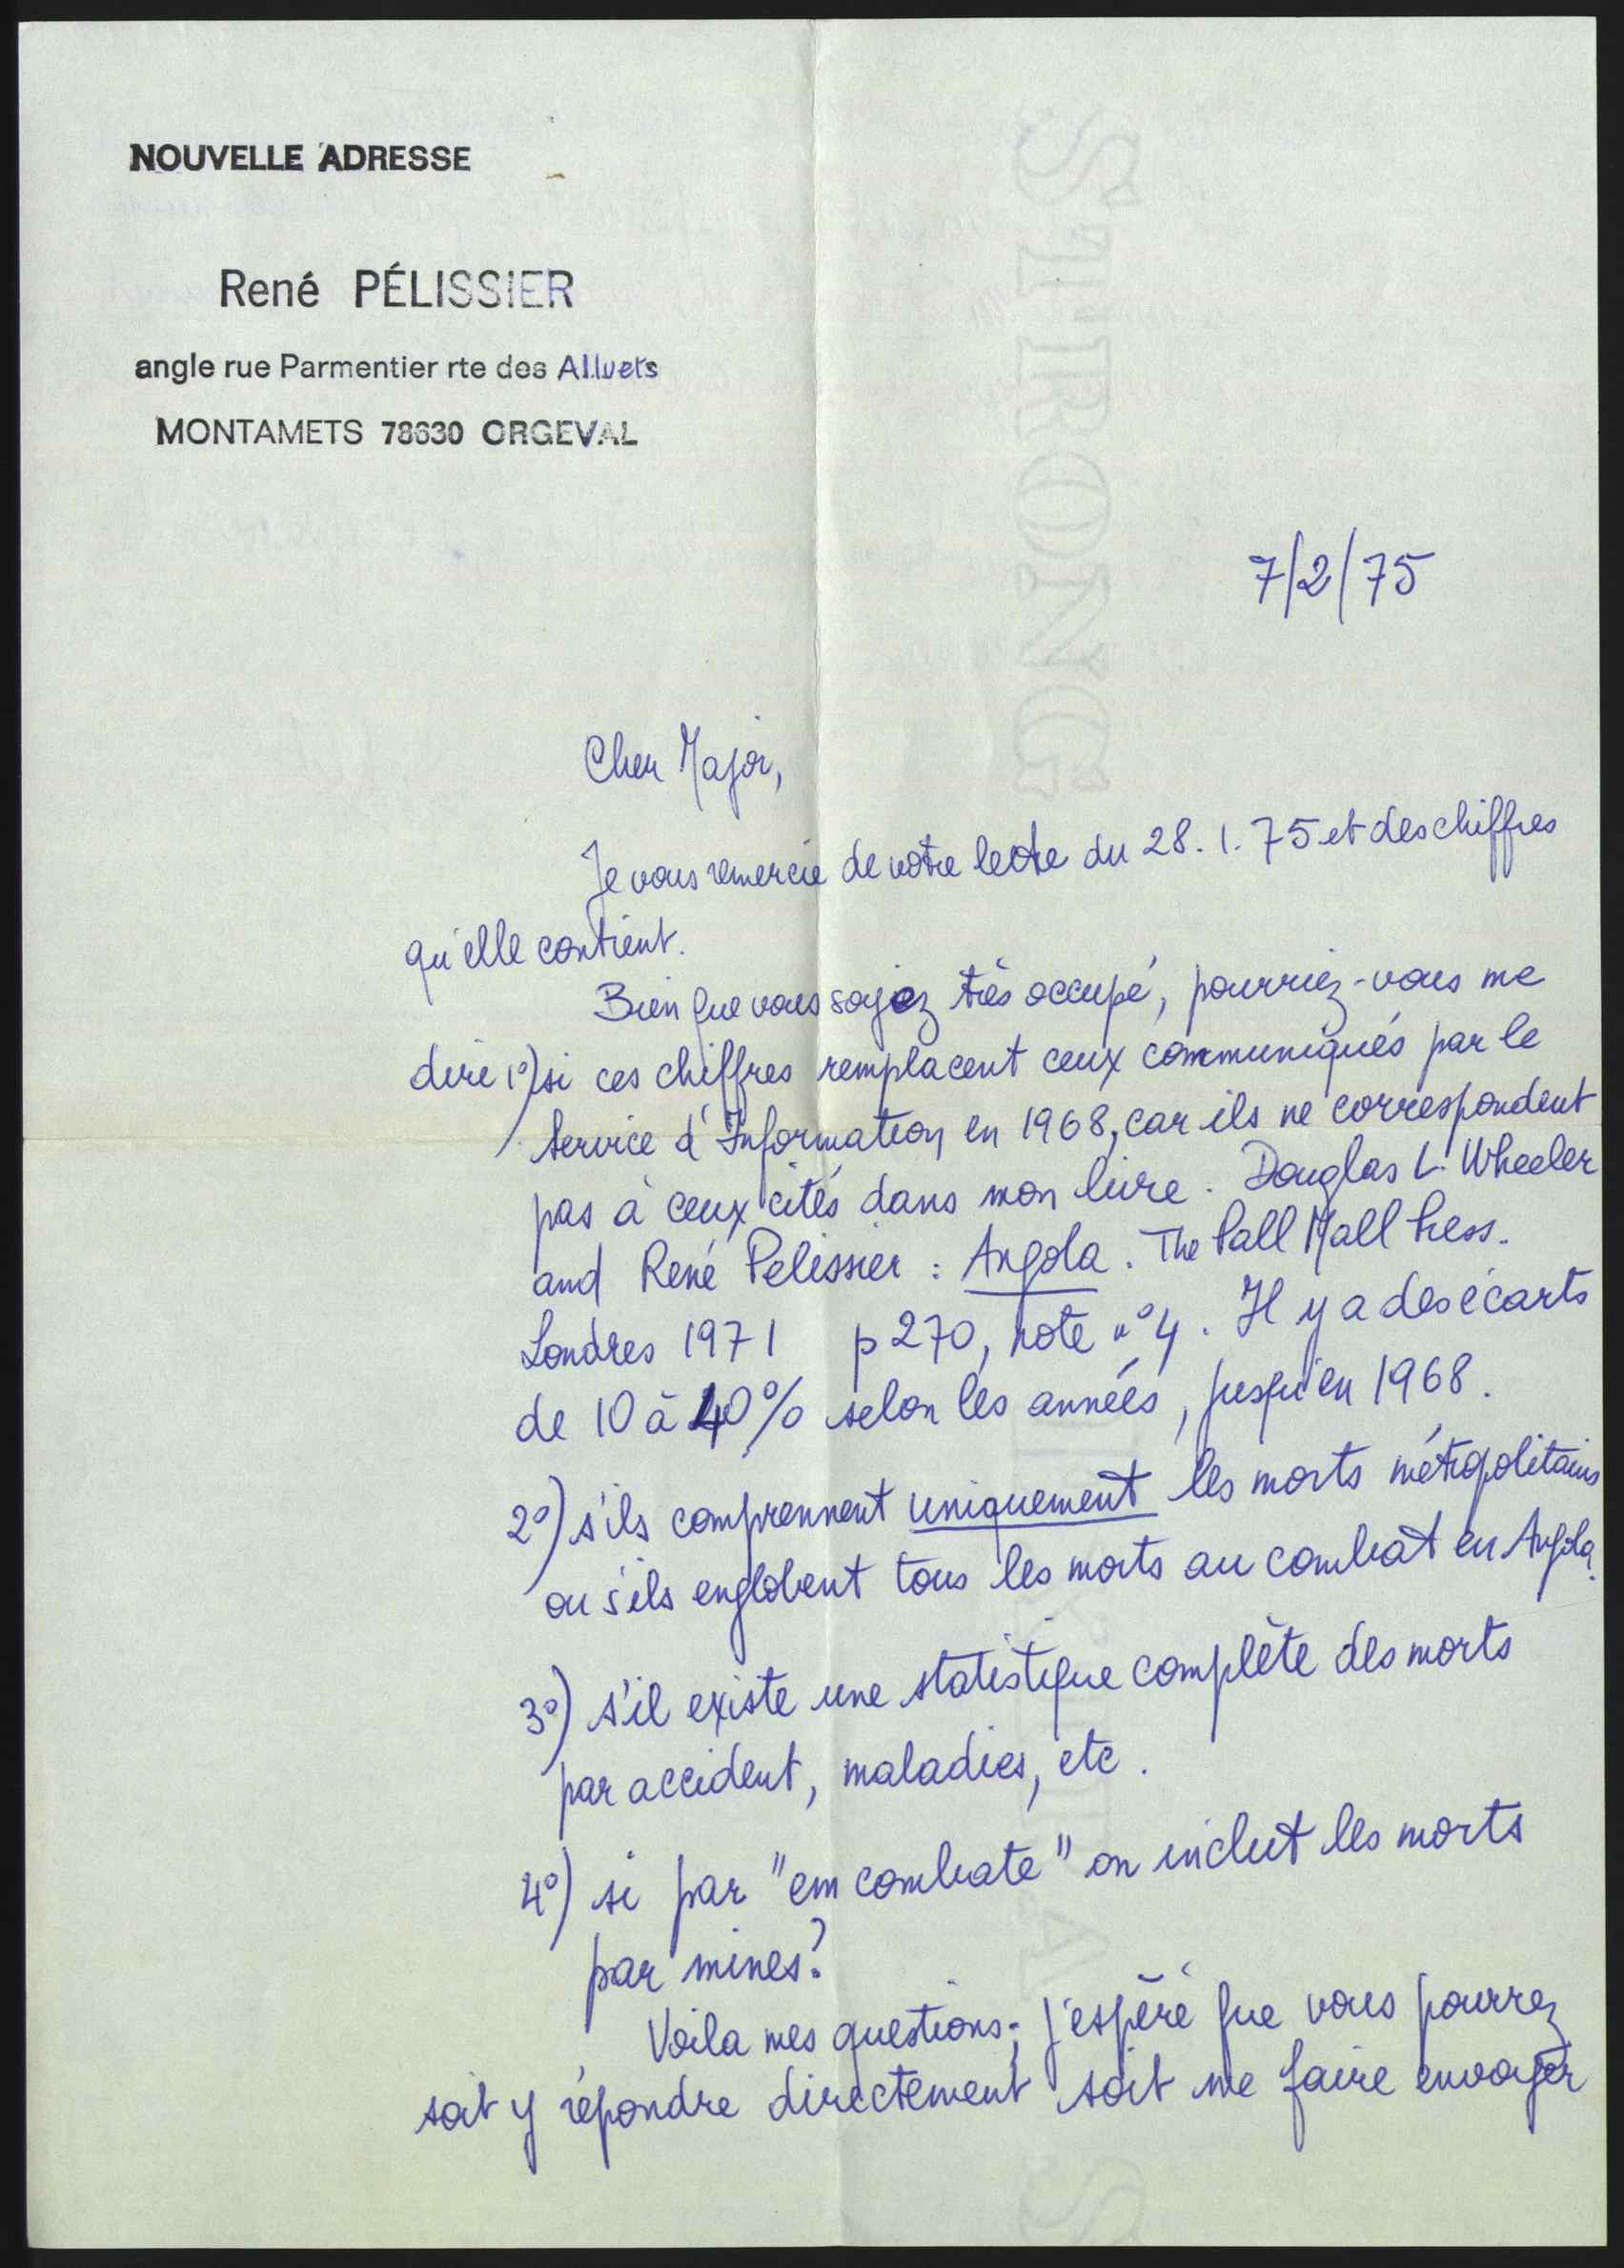 NOUVELLE ADRESSE
René PÉLISSIER
angle rue Parmentier rte des Alluets
MONTAMETS 78630 ORGEVAL
7/2/75
Cher Major,
Je vous remercie de votre lettre du 28.1.75 et des chiffres
qu'elle contient.
Bien que vous soyez très occupé, pourriez-vous me
dire 1º) si ces chiffres remplacent ceux communiqués par le
Service d'Information en 1968, car ils ne correspondent
pas à ceux cités dans mon livre. Douglas L. Wheeler
and René Pélissier : Angola. The Pall Mall Press.
Londres 1971 p 270, note nº 4. Il y a des écarts
de 10 à 40% selon les années, jusqu'en 1968.
2º) s'ils comprennent uniquement les morts métropolitains
ou s'ils englobent tous les morts au combat en Angola.
3º) s'il existe une statistique complète des morts
par accident, maladies, etc.
4º) si par "em combate" on inclut les morts
par mines?
Voila mes questions; j'espère que vous pourrez
soit y répondre directement soit me faire envoyer
STRONG